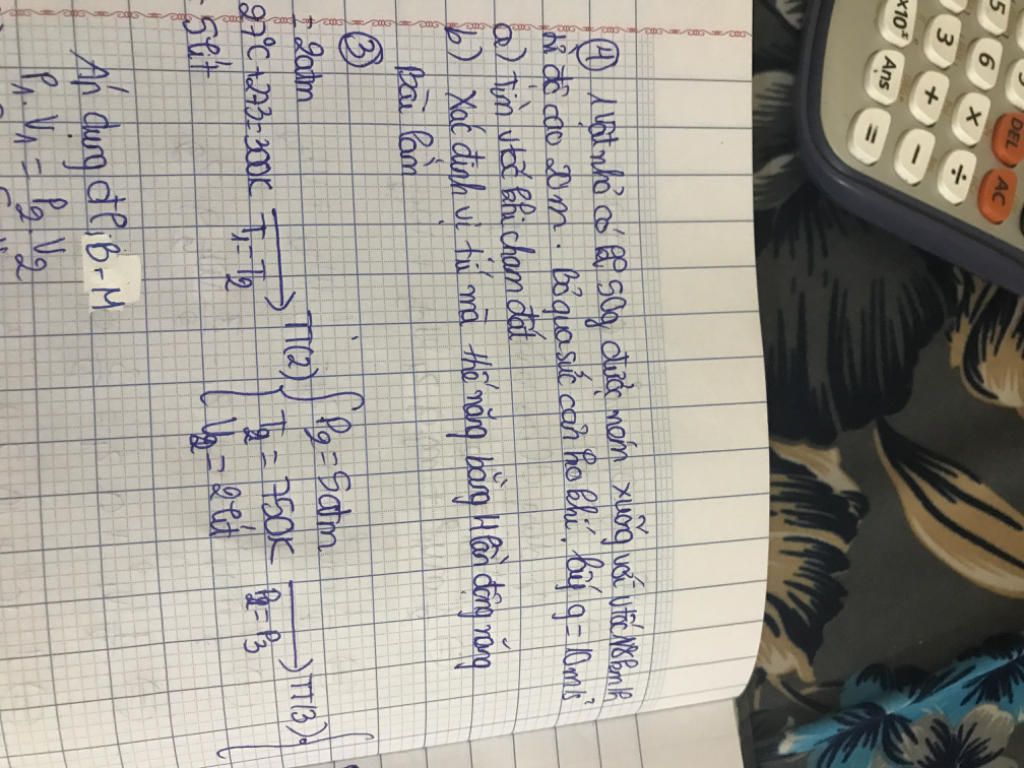 ④ 1 vật nhỏ có kl 50g được ném xuống với vtốc 18km/h
ở độ cao 20m. bỏ qua sức cản ko khí. lấy g = 10m/s²
a) Tính vtốc khi chạm đất
b) Xác định vị trí mà thế năng bằng 4 lần động năng
Bài làm
③
= 2atm
27°C + 273 = 300K
T₁ = T₂
TT(2) { P₂ = 5atm
T₂ = 350K
V₂ = 2lít
P₂ = P₃
TT(3) {
= 5lít
Áp dụng đl B - M
P₁. V₁ = P₂. V₂
x10ˣ
Ans
=
3
+
−
6
x
÷
5
DEL
AC